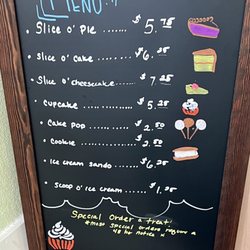 MENU
• Slice o' Pie ...... $5.75
• Slice o' Cake ...... $6.25
Slice o' cheesecake .... $7.25
• cupcake ...... $5.25
• Cake pop ...... $2.50
• Cookie ...... $2.50
• Ice cream sando ..... $6.25
• Scoop o' Ice cream .... $1.25
Special Order a treat!
*most special orders require a
48 hr notice *